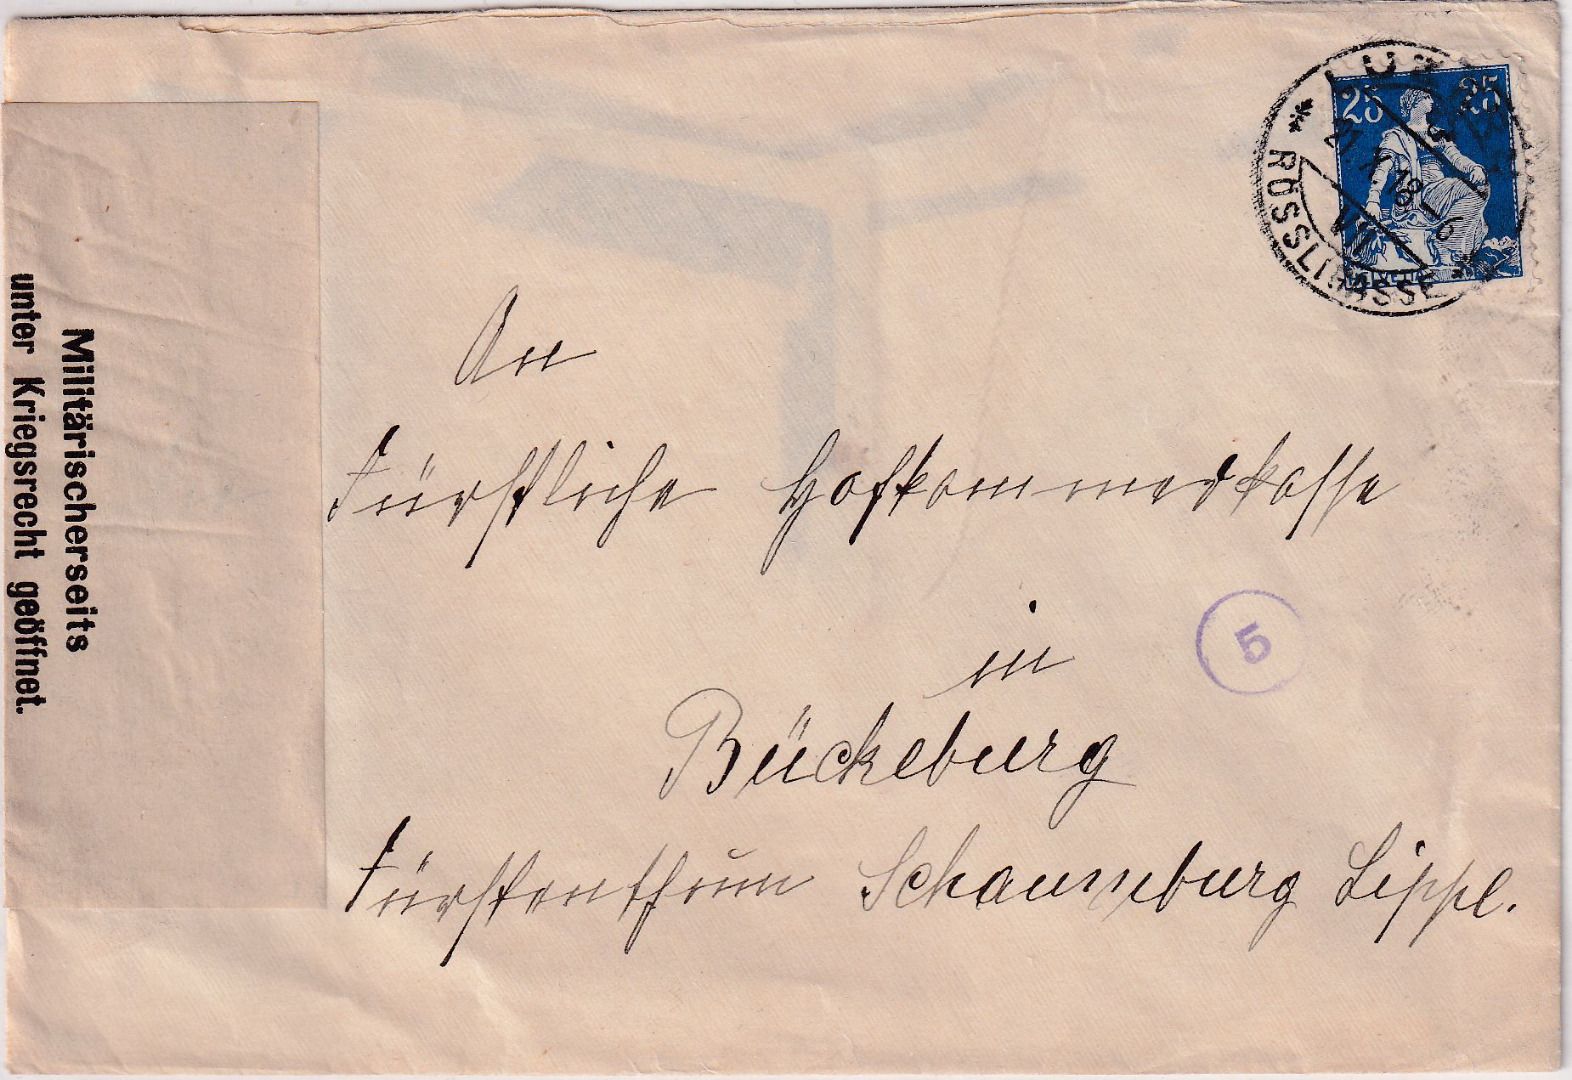 Militärischerseits
unter Kriegsrecht geöffnet.
LUZERN
* RÖSSLIGASSE *
21.X.18–6
VI
25 25
HELVETIA
An
Fürstliche Hofkammerkasse
in
Bückeburg
Fürstenthum Schaumburg Lippe.
5